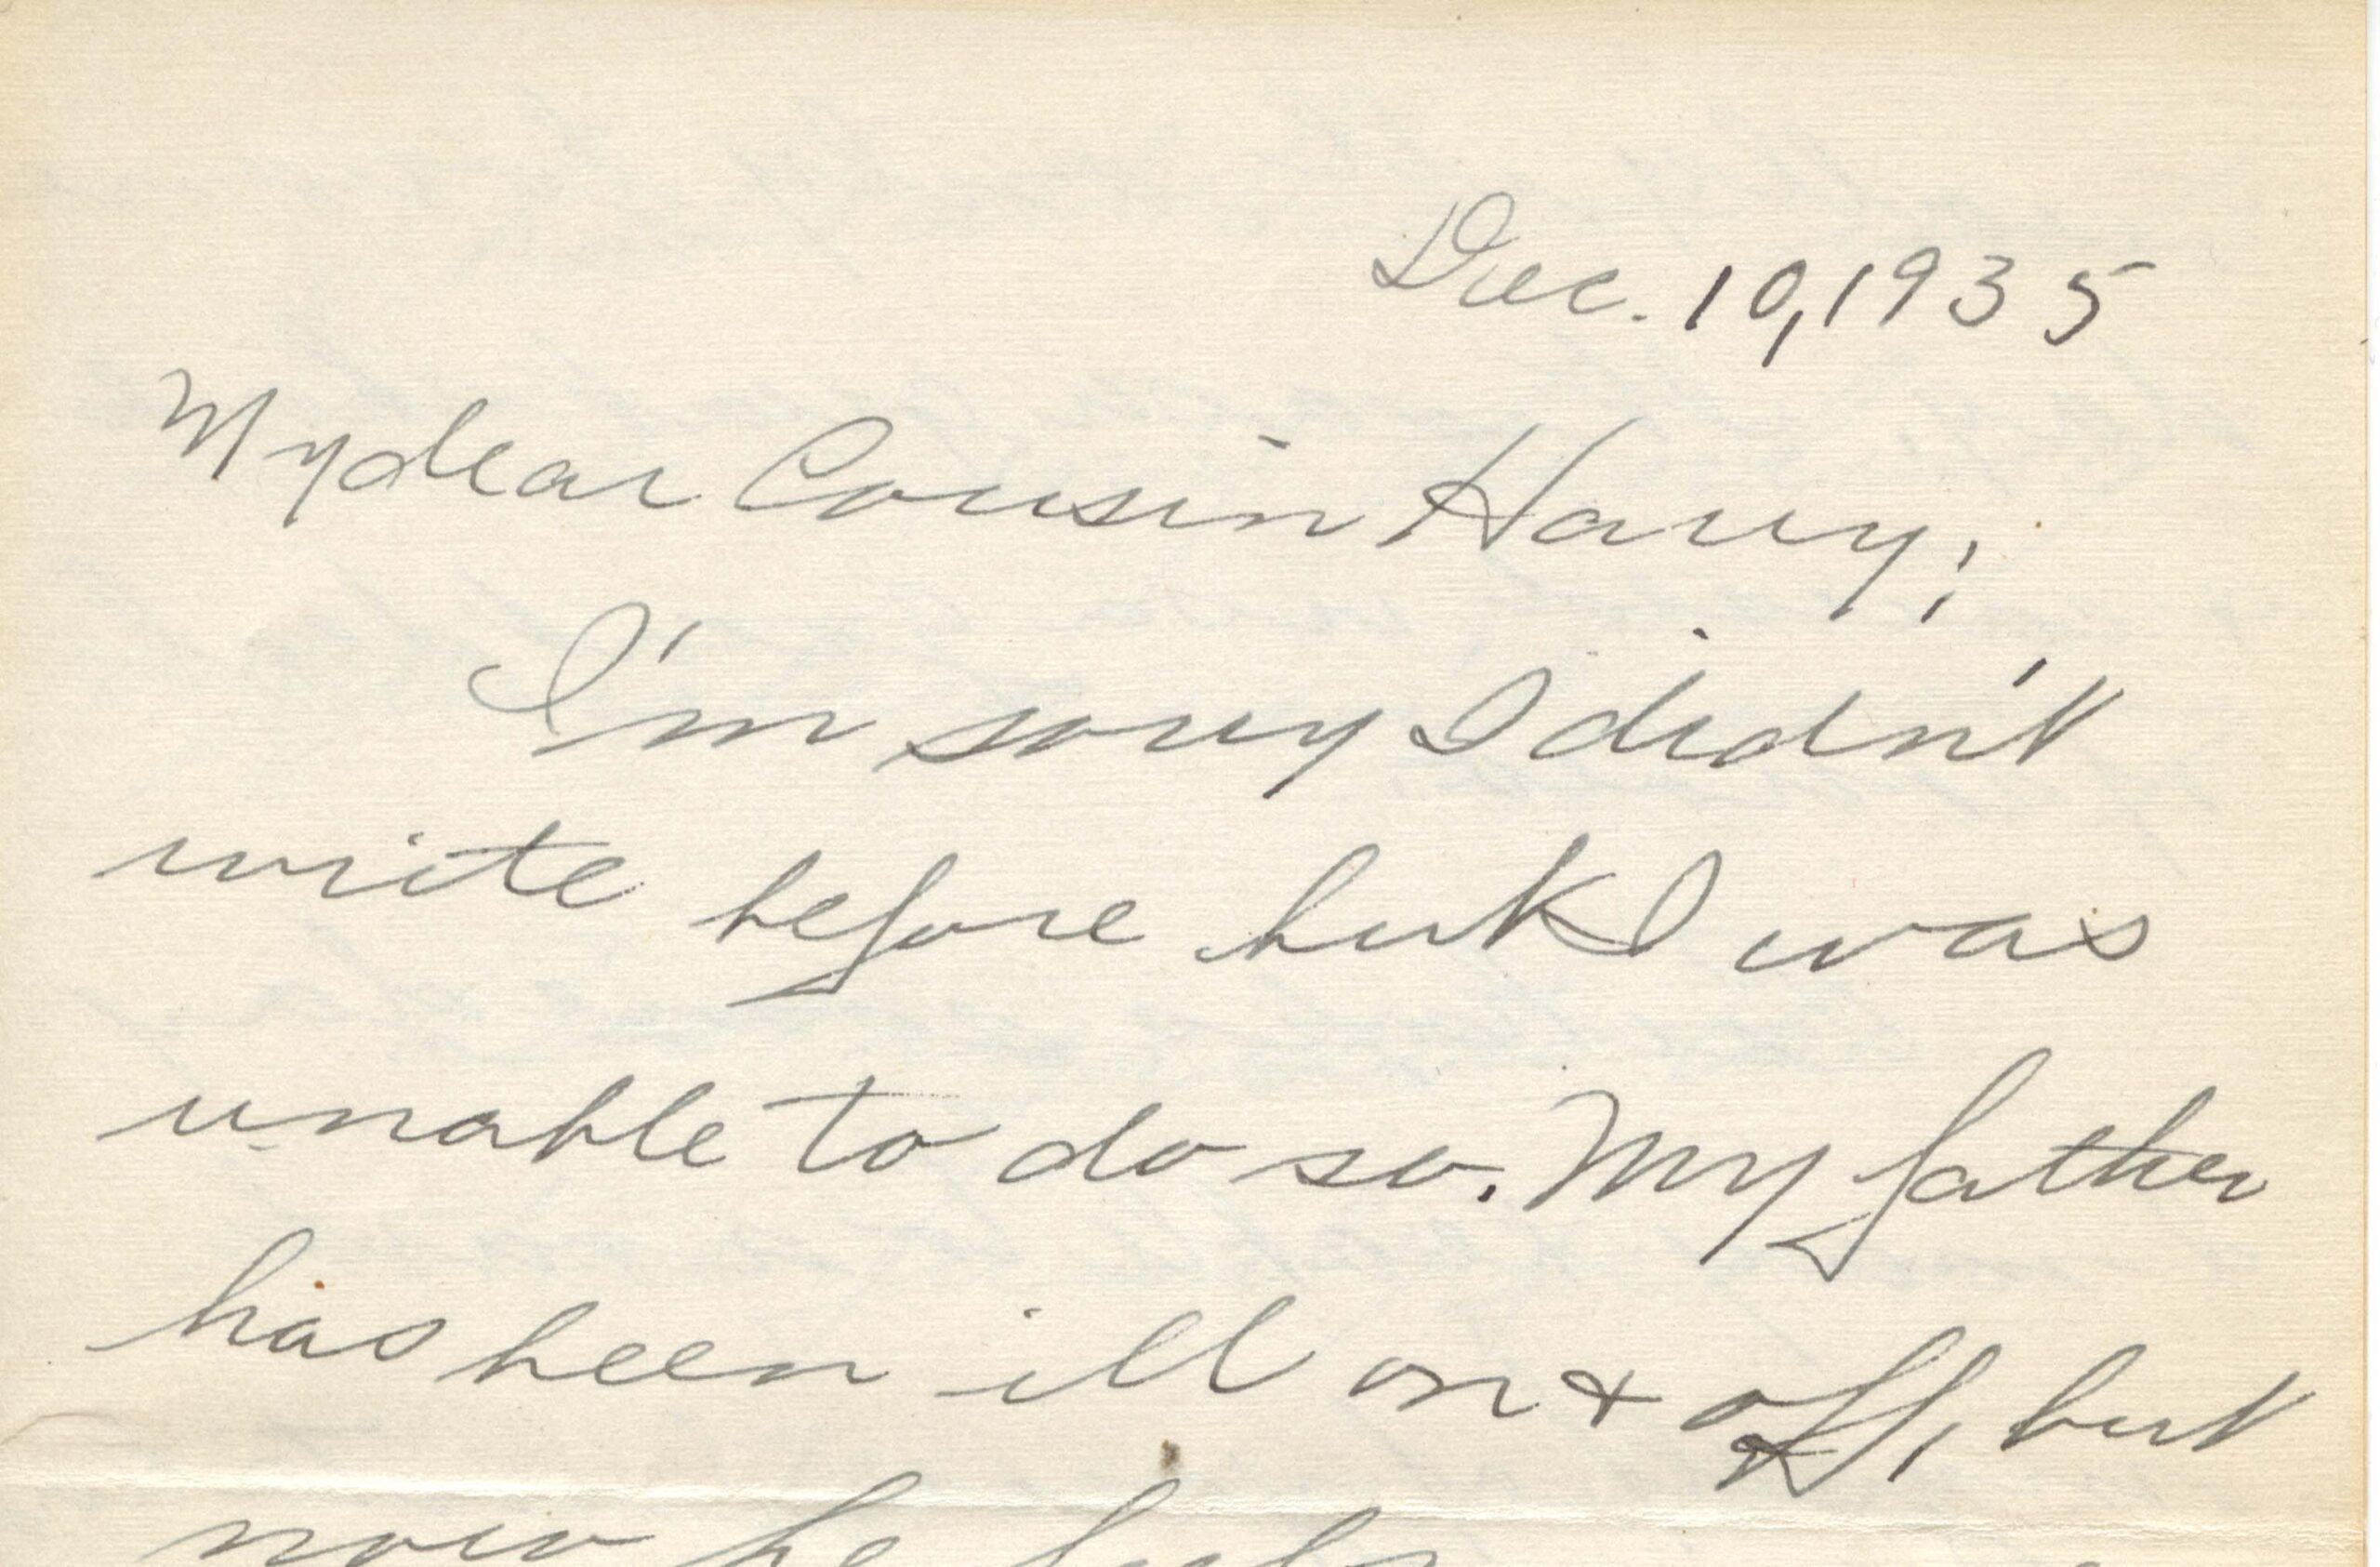 Dec. 10, 1935
My dear Cousin Harry;
I'm sorry I didn't
write before but I was
unable to do so. My father
has been ill on & off, but
now he feels